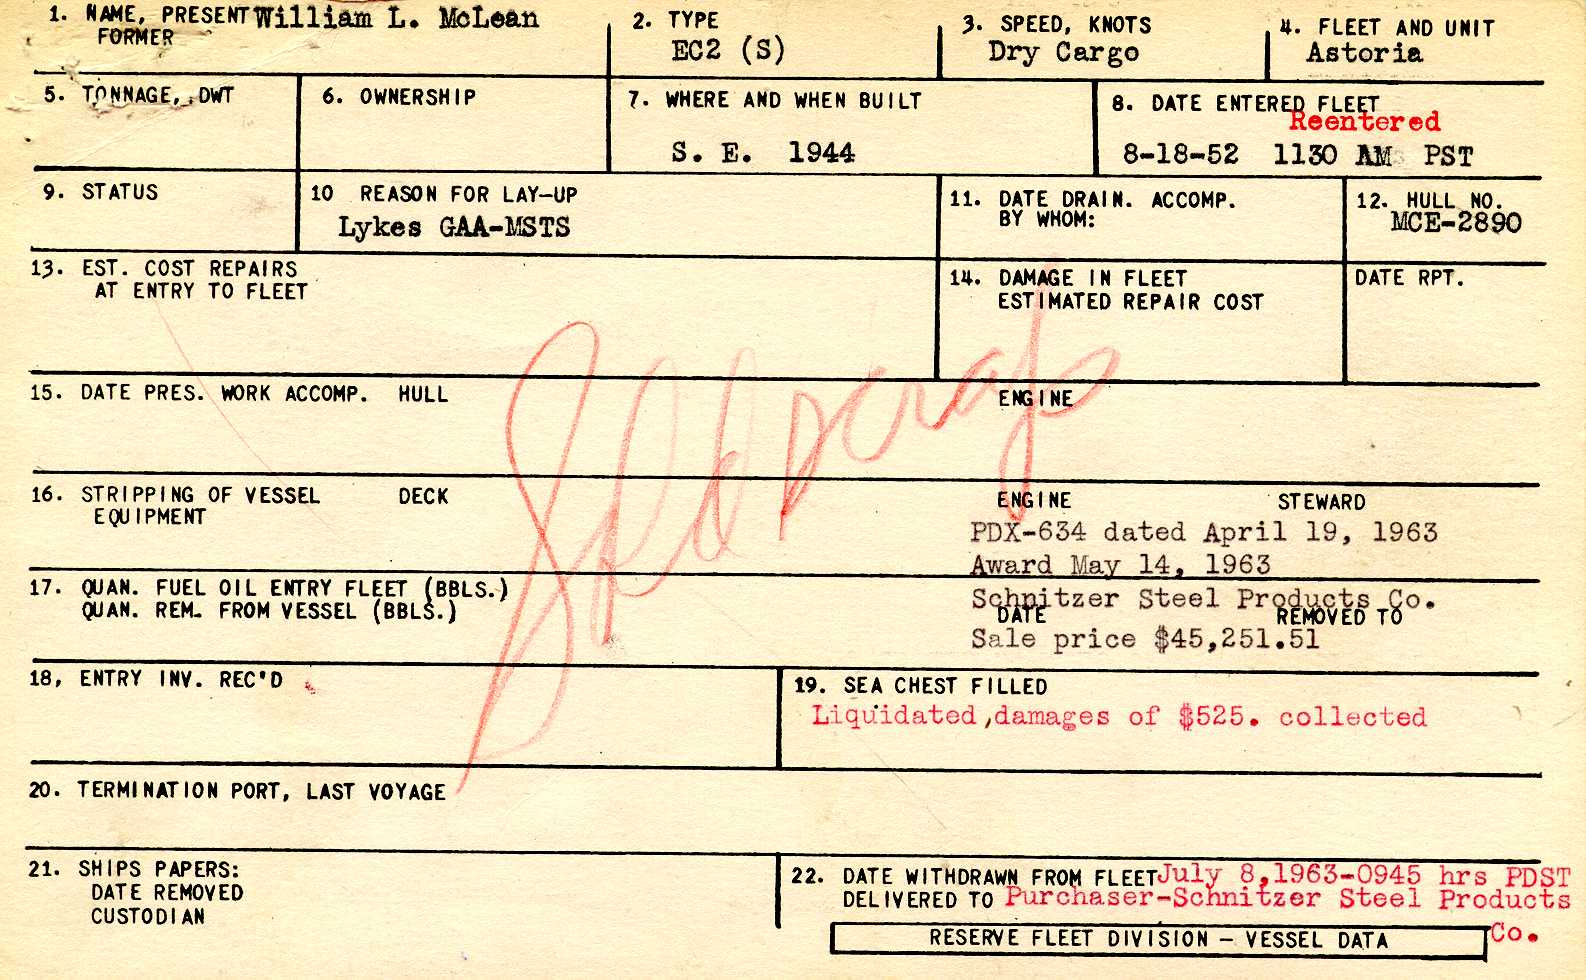 1. NAME, PRESENT William L. McLean
FORMER
2. TYPE
EC2 (S)
3. SPEED, KNOTS
Dry Cargo
4. FLEET AND UNIT
Astoria
5. TONNAGE, DWT
6. OWNERSHIP
7. WHERE AND WHEN BUILT
S. E. 1944
8. DATE ENTERED FLEET
Reentered
8-18-52 1130 AM PST
9. STATUS
10 REASON FOR LAY-UP
Lykes GAA-MSTS
11. DATE DRAIN. ACCOMP.
BY WHOM:
12. HULL NO.
MCE-2890
13. EST. COST REPAIRS
AT ENTRY TO FLEET
14. DAMAGE IN FLEET
ESTIMATED REPAIR COST
DATE RPT.
Sold scrap
15. DATE PRES. WORK ACCOMP. HULL
ENGINE
16. STRIPPING OF VESSEL DECK
EQUIPMENT
ENGINE STEWARD
PDX-634 dated April 19, 1963
Award May 14, 1963
17. QUAN. FUEL OIL ENTRY FLEET (BBLS.)
QUAN. REM. FROM VESSEL (BBLS.)
Schnitzer Steel Products Co.
DATE REMOVED TO
Sale price $45,251.51
18, ENTRY INV. REC'D
19. SEA CHEST FILLED
Liquidated,damages of $525. collected
20. TERMINATION PORT, LAST VOYAGE
21. SHIPS PAPERS:
DATE REMOVED
CUSTODIAN
22. DATE WITHDRAWN FROM FLEET July 8,1963-0945 hrs PDST
DELIVERED TO Purchaser-Schnitzer Steel Products
Co.
RESERVE FLEET DIVISION – VESSEL DATA